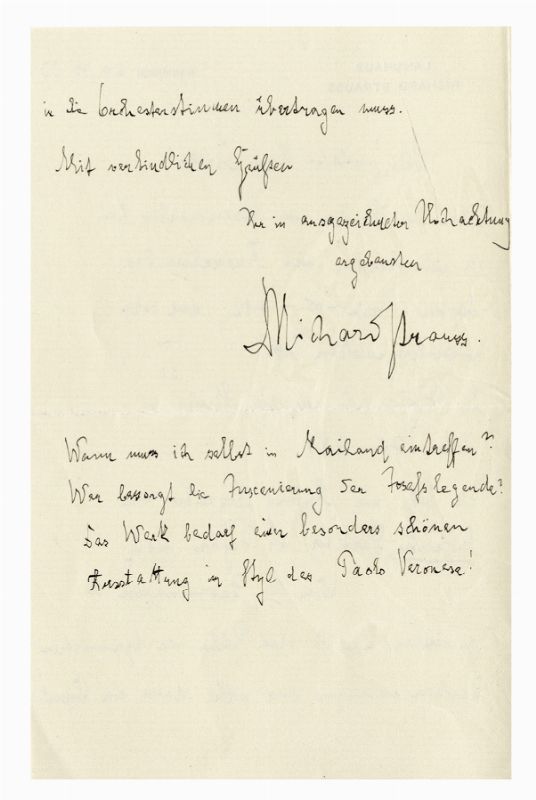 in die Orchesterstimmen übertragen muss.
Mit verbindlichen Grüßen
Ihr in ausgezeichneter Hochachtung
ergebenster
Richard Strauss.
Wann muss ich selbst in Mailand eintreffen?
Wer besorgt die Inscenierung der Josefslegende?
Das Werk bedarf einer besonders schönen
Ausstattung im Styl des Paolo Veronese!